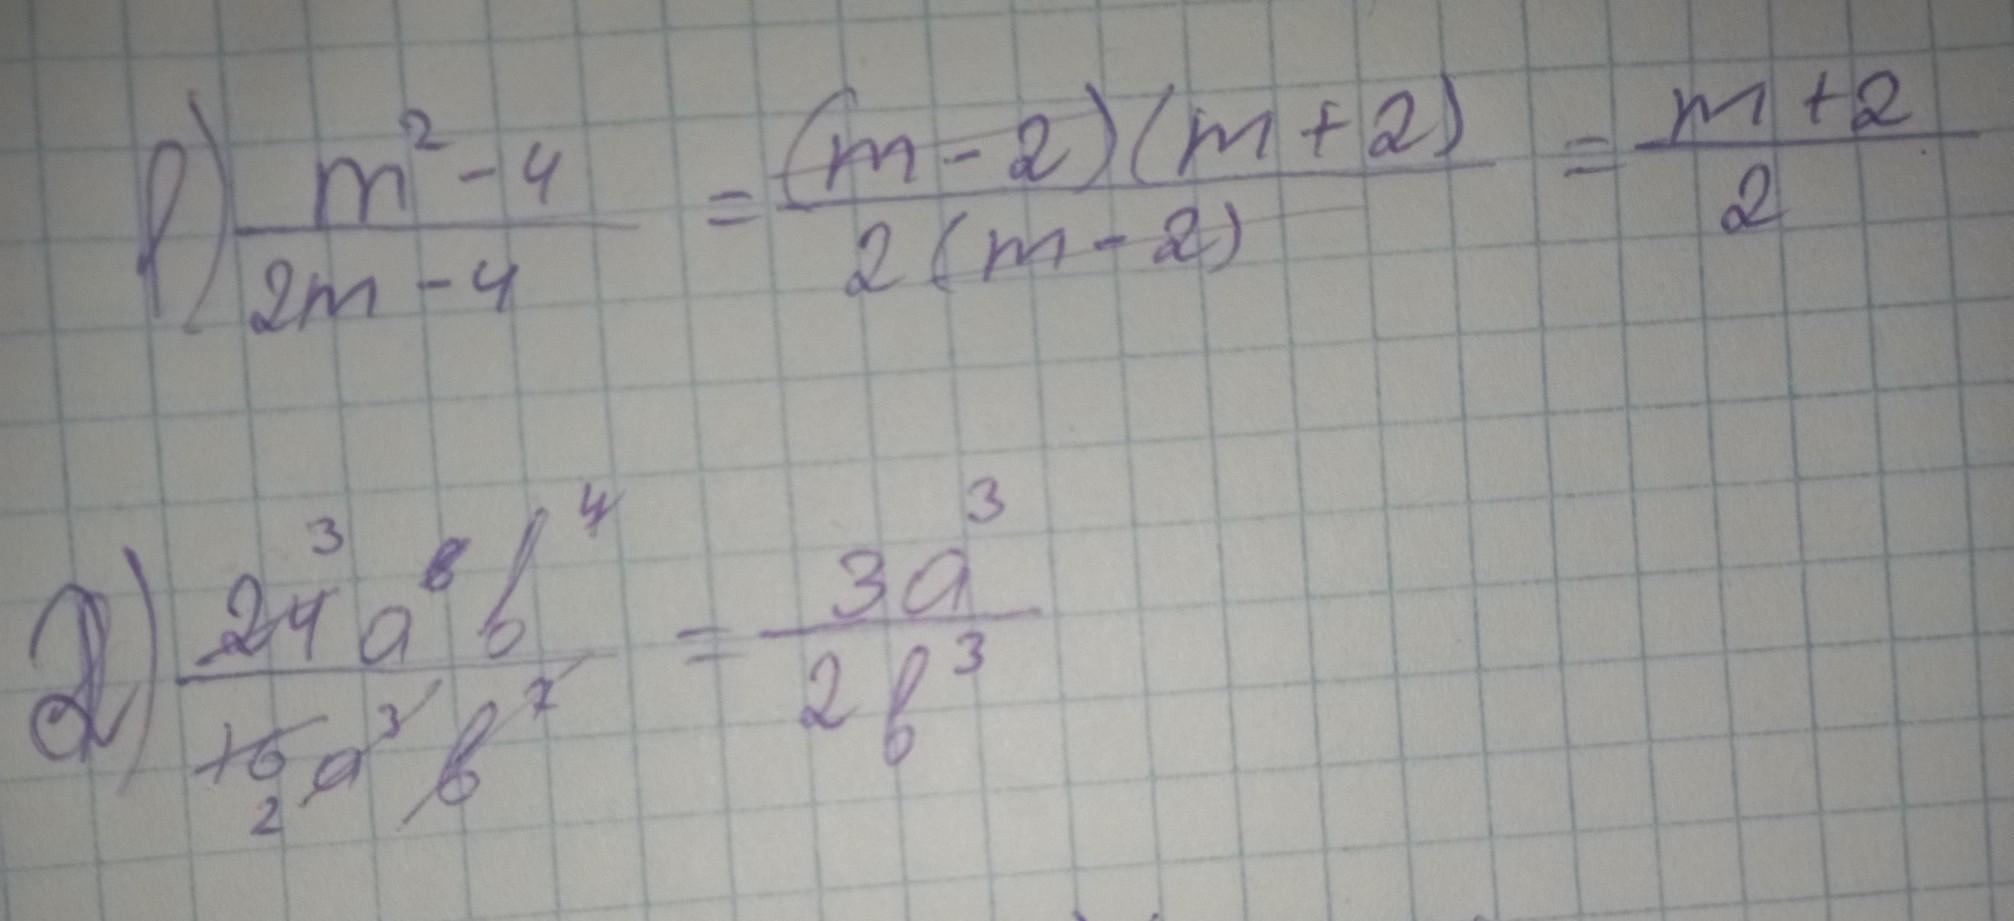 1) m²-4 / 2m-4 = (m-2)(m+2) / 2(m-2) = m+2 / 2
2) 24³a⁶b⁴ / 16₂a³b⁷ = 3a³ / 2b³